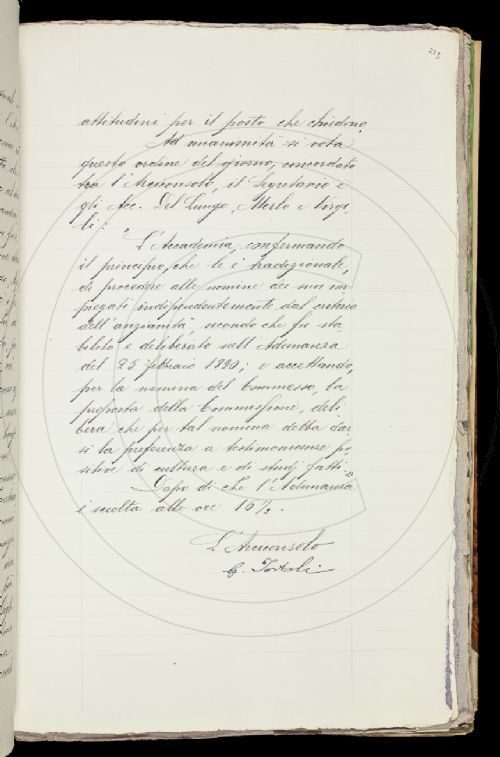 273
attitudini per il posto che chiedino.
Ad unanimità si vota
questo ordine del giorno, concordato
tra l'Arciconsolo, il Segretario e
gli Acc. Del Lungo, Merlo e Virgi-
li:
"L'Accademia, confermando
il principio, che le è tradizionale,
di procedere alle nomine dei suoi im-
piegati indipendentemente dal criterio
dell'anzianità, secondo che fu sta-
bilito e deliberato nell'Adunanza
del 25 febbraio 1890; e accettando,
per la nomina del Commesso, la
proposta della Commissione, deli-
bera che per tal nomina debba dar-
si la preferenza a testimonianze po-
sitive di cultura e di studj fatti."
Dopo di che l'Adunanza
è sciolta alle ore 10½.
L'Arciconsolo
G. Tortoli